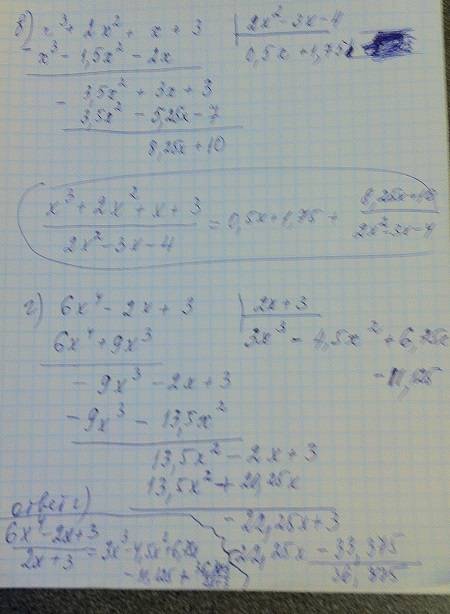 в) x³ + 2x² + x + 3 | 2x² - 3x - 4
- x³ - 1,5x² - 2x 0,5x + 1,75
- 3,5x² + 3x + 3
3,5x² - 5,25x - 7
8,25x + 10
(x³ + 2x² + x + 3)/(2x² - 3x - 4) = 0,5x + 1,75 + (8,25x + 10)/(2x² - 3x - 4)
г) 6x⁴ - 2x + 3 | 2x + 3
6x⁴ + 9x³ 3x³ - 4,5x² + 6,75x
- 9x³ - 2x + 3 - 11,125
- 9x³ - 13,5x²
13,5x² - 2x + 3
13,5x² + 20,25x
- 22,25x + 3
- 22,25x - 33,375
36,375
ответ г)
(6x⁴ - 2x + 3)/(2x + 3) = 3x³ - 4,5x² + 6,75x
- 11,125 +